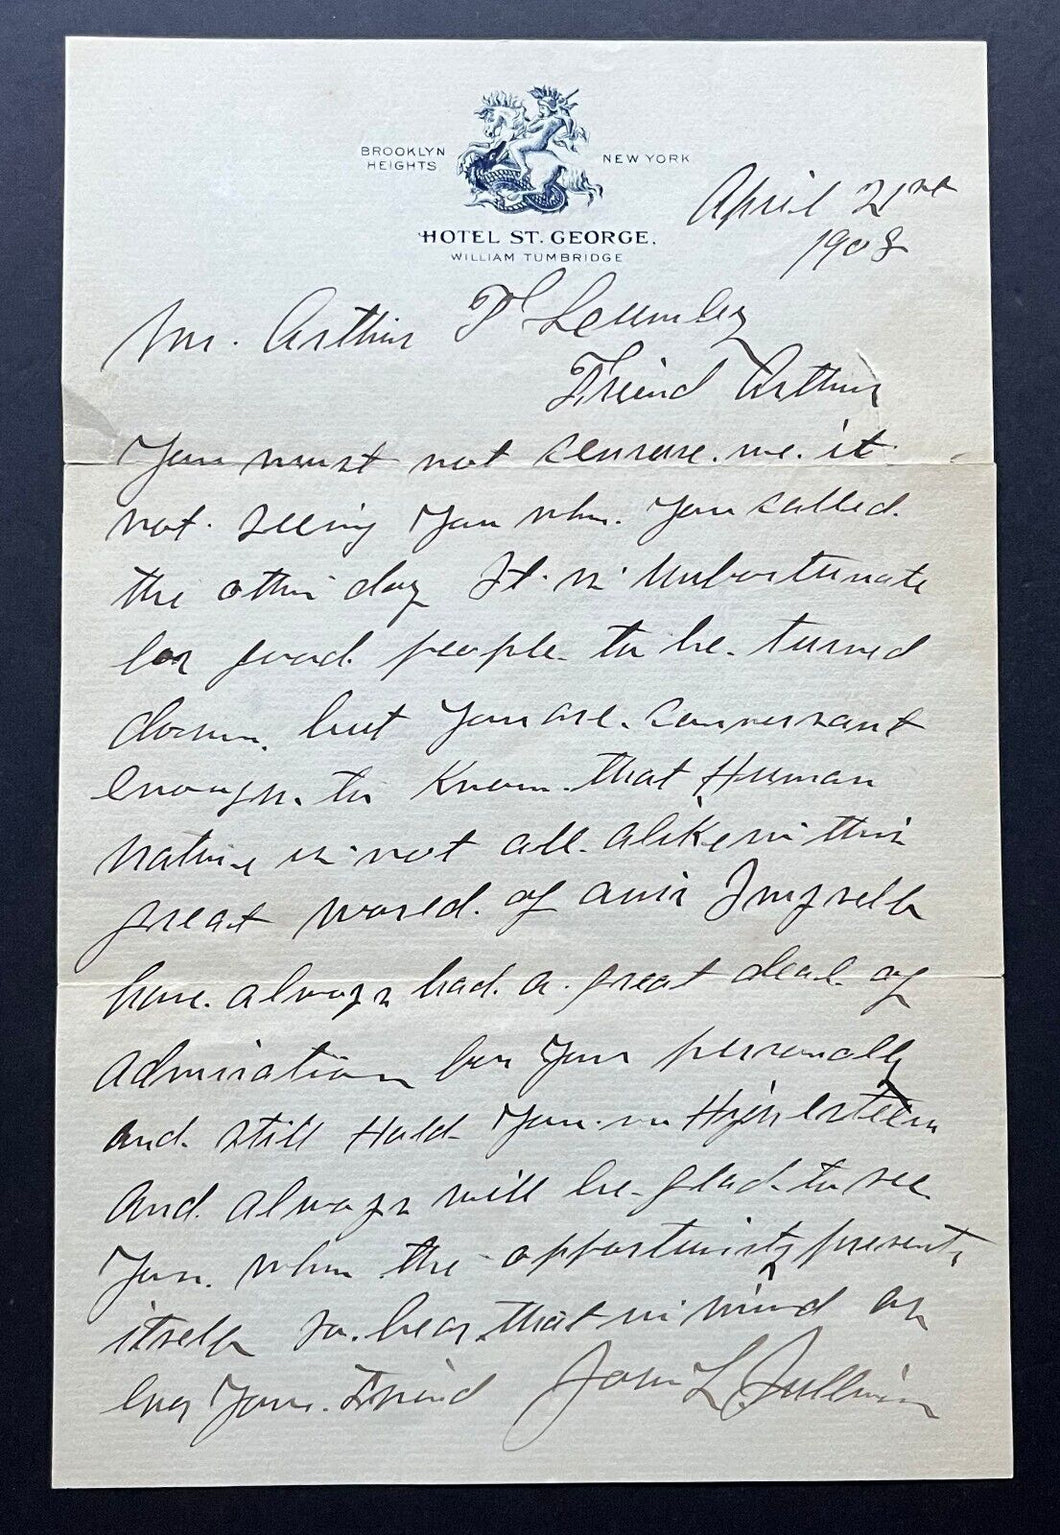 BROOKLYN HEIGHTS
NEW YORK
HOTEL ST. GEORGE.
WILLIAM TUMBRIDGE
April 21
1908
Mr. Arthur Lumley
Friend Arthur
You must not censure. me. it
not. seeing you when. you called.
the other day It. is. unfortunate
for good. people. to be. turned
down. but you are. conversant
enough. to Know. that Human
nature is. not all. alike in this
great world. of ours I myself
have. always had. a. great deal. of
admiration for you personally
and. still Hold you. in High esteem
and. always will be. glad. to see
you. when the opportunity presents
itself so. bear that in mind as
ever your. Friend John L. Sullivan